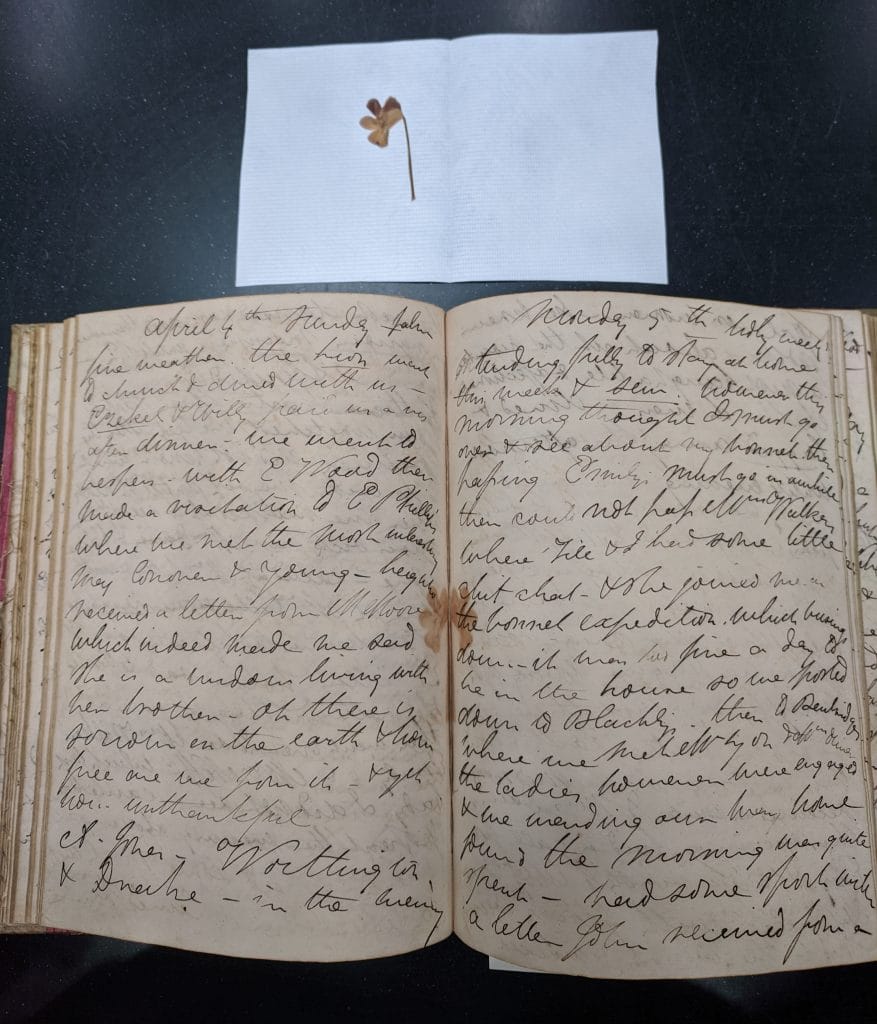 April 4th Sunday Palm
fine weather. the
to church & dined with us –
Ezekel & Willy gave us a
after dinner – we went to
vespers – with E Wood then
made a visitation to E Phillips
where we met the most interesting
May Cononen & Young –
received a letter from M Moore
which indeed made me sad
she is a widow living with
her brother – oh there is
sorrow on the earth & how
free are we from it – & yet
how unthankful
A. Jones – Worthington
& Drake – in the evening
Monday 5th holy week
intending fully to stay at home
this week & sew. however this
morning thought I must go
over & see about my bonnet. then
passing Emilys must go in awhile
then could not pass Walkers
where Tile & I had some little
chit chat – & she joined me in
the bonnet expedition. which being
down – it was too fine a day to
be in the house so we sported
down to Blackly. then to
where we met
the ladies however were engaged
& we wending our way home
found the morning was quite
spent – had some sport with
a letter John received from a